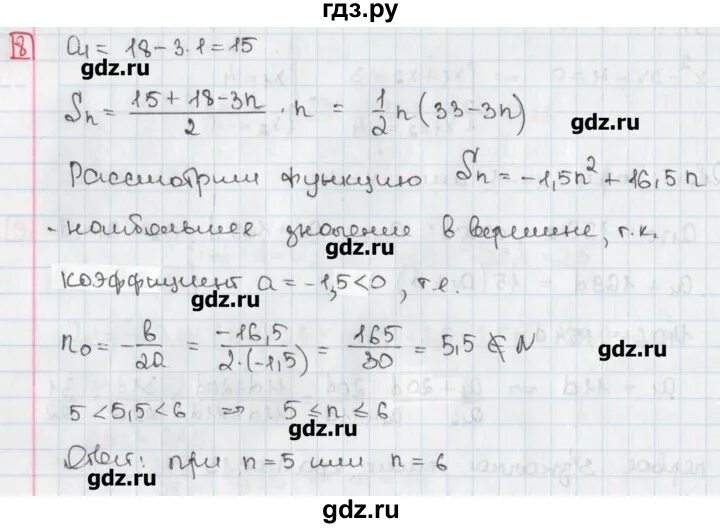 гдз.ру
8 a₁ = 18 - 3·1 = 15
gdz.ru
Sₙ = (15 + 18 - 3n)/2 · n = 1/2 n (33 - 3n)
gdz.ru
Рассмотрим функцию Sₙ = -1,5n² + 16,5n
gdz.ru
- наибольшее значение в вершине, т.к.
gdz.ru
коэффициент a = -1,5 < 0, т.е.
gdz.ru
n₀ = -b/2a = -16,5/2·(-1,5) = 165/30 = 5,5 ∉ N
gdz.ru
5 < 5,5 < 6 ⇒ 5 ≤ n ≤ 6
gdz.ru
Ответ: при n = 5 или n = 6
gdz.ru
gdz.ru